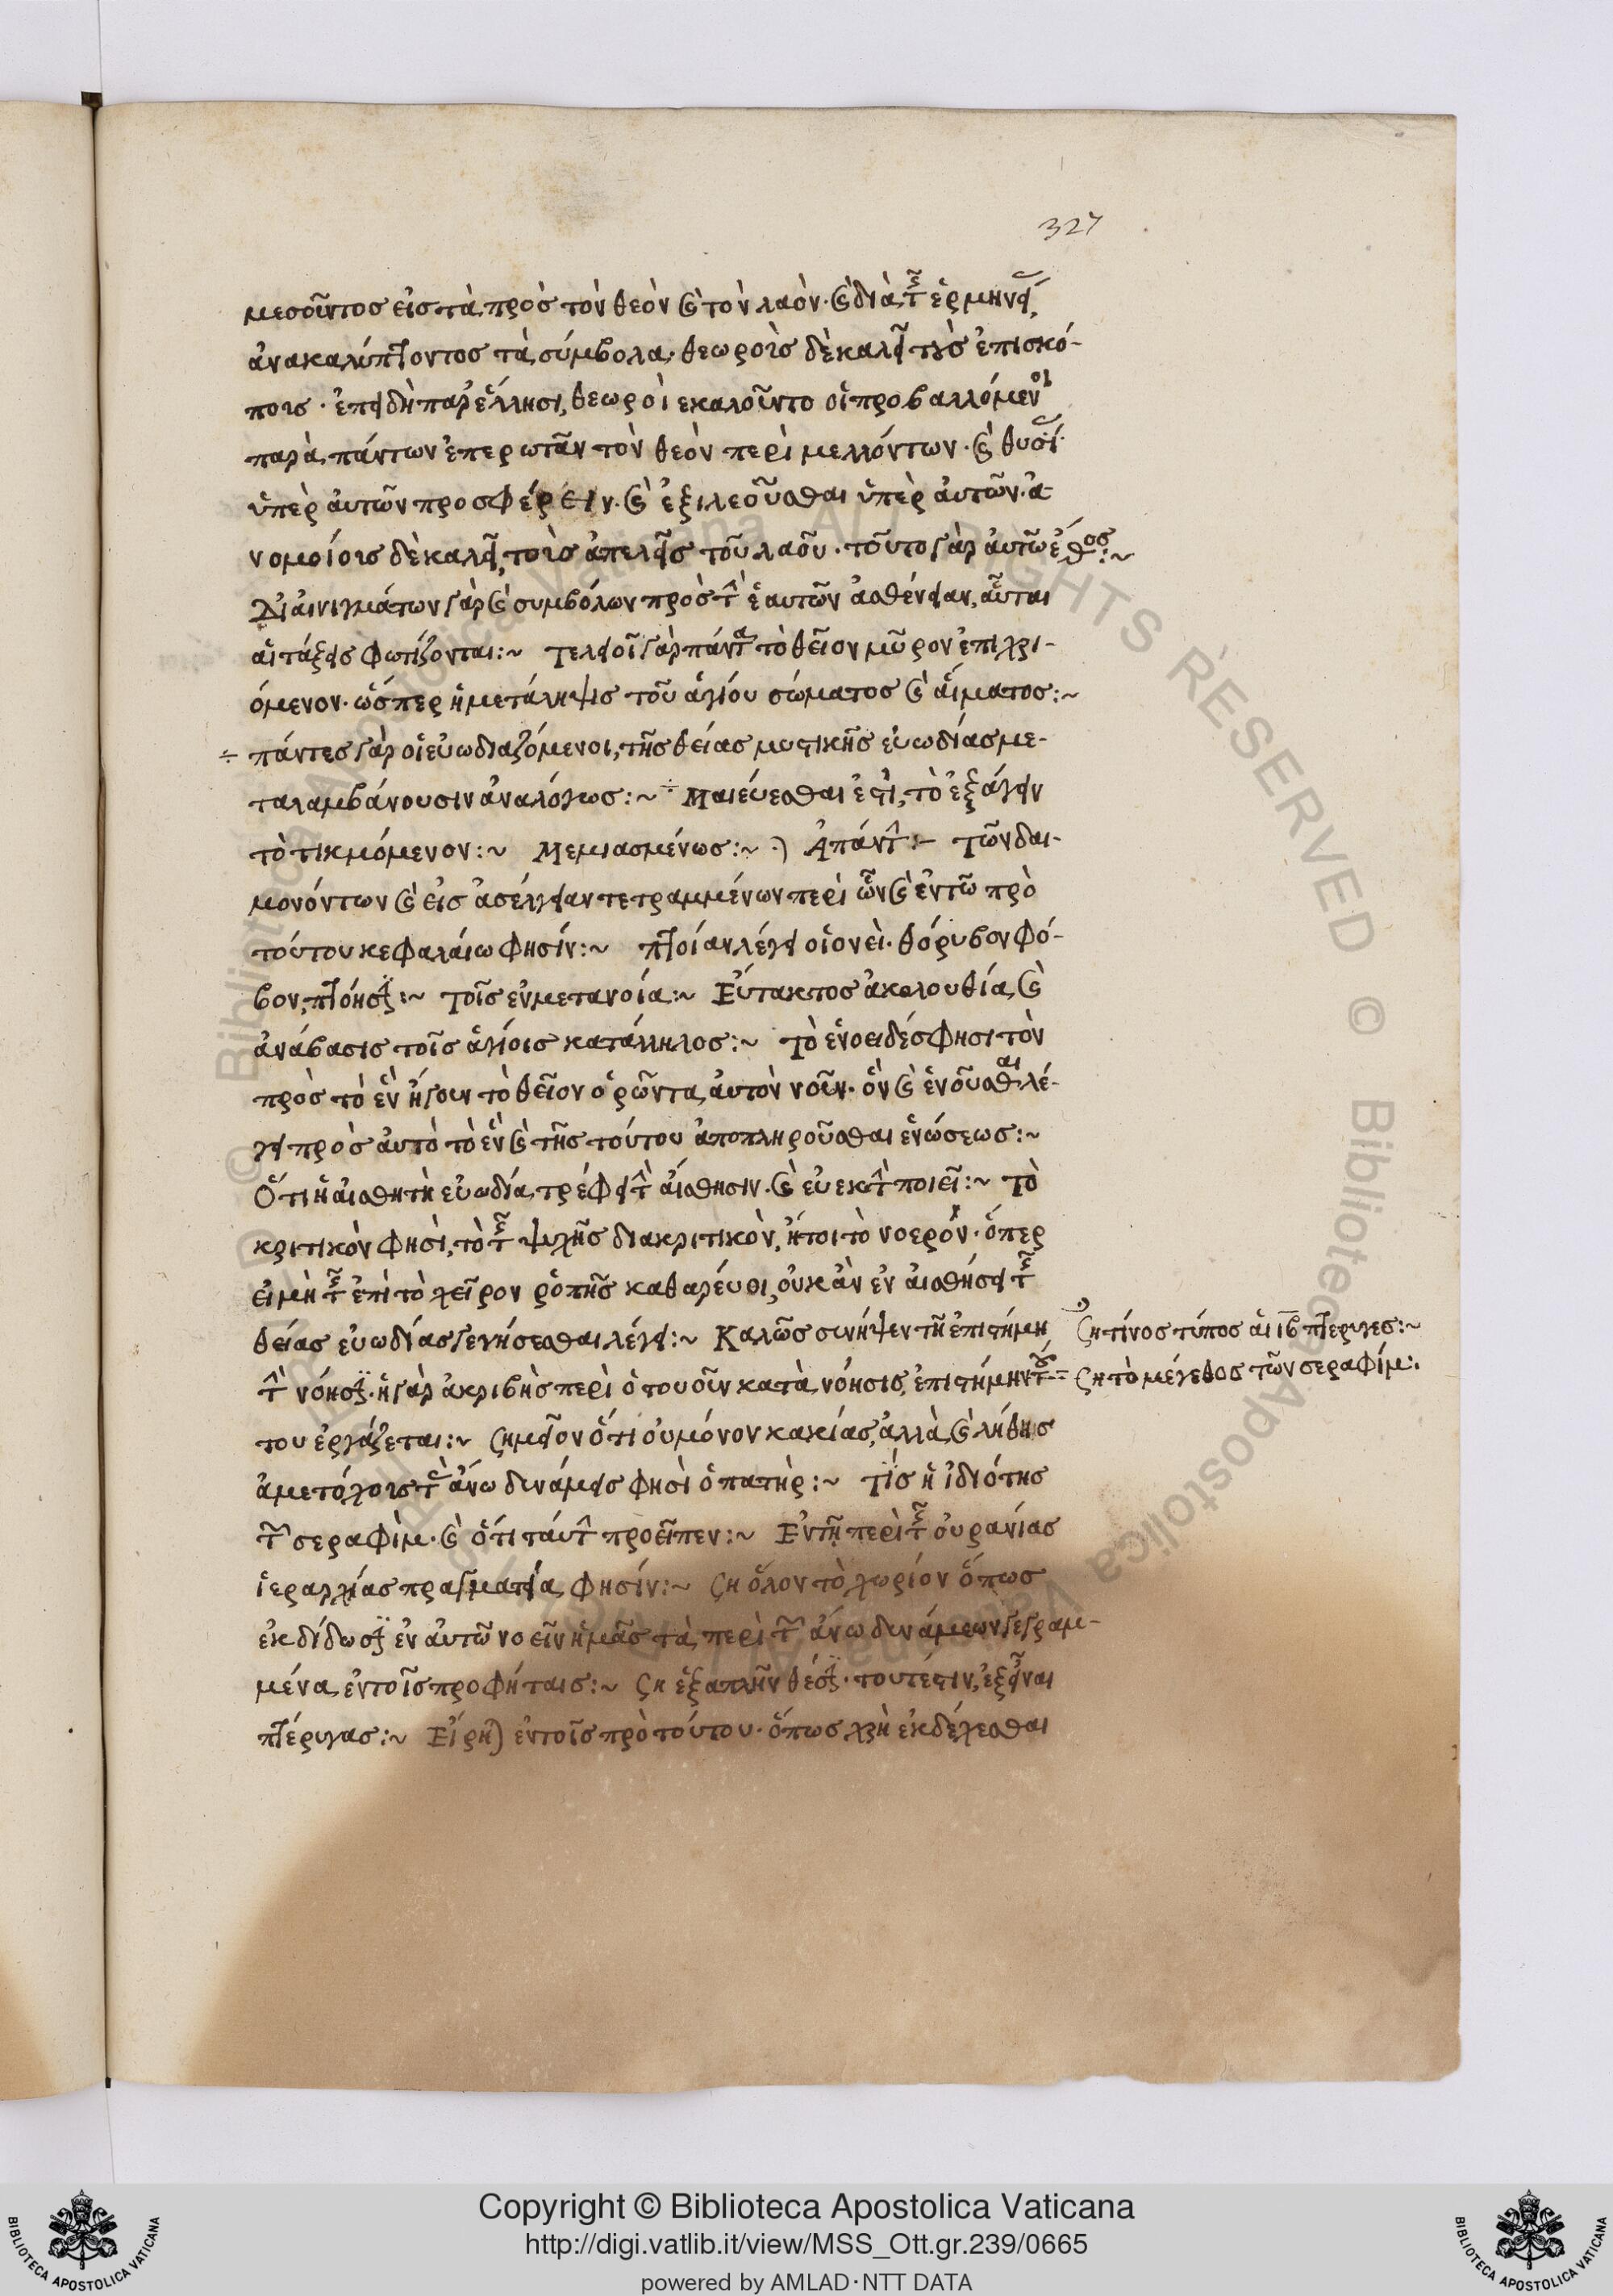 327
μεσοῦντος εἰς τὰ πρὸς τὸν θεὸν καὶ τὸν λαὸν· καὶ διὰ τῆς ἑρμηνείας
ἀνακαλύπτοντος τὰ σύμβολα· θεωροὺς δὲ καλεῖ τοὺς ἐπισκό-
πους· ἐπειδὴ παρ' ἕλλησι, θεωροὶ ἐκαλοῦντο οἱ προβαλλόμενοι
παρὰ πάντων ἐπερωτᾶν τὸν θεὸν περὶ μελλόντων· καὶ θυσίας
ὑπὲρ αὐτῶν προσφέρειν· καὶ ἐξιλεοῦσθαι ὑπὲρ αὐτῶν· ἀ
νομοίοις δὲ καλεῖ, τοῖς ἀτελεῖς τοῦ λαοῦ· τοῦτο γὰρ αὐτῶ ἔθος:~
Δι' αἰνιγμάτων γὰρ καὶ συμβόλων πρὸς τὴν ἑαυτῶν ἀσθένειαν, αὗται
αἱ τάξεις φωτίζονται:~ τελειοῖ γὰρ πάντα τὸ θεῖον μῦρον ἐπιχρι-
όμενον· ὥσπερ ἡ μετάληψις τοῦ ἁγίου σώματος καὶ αἵματος:~
÷ πάντες γὰρ οἱ εὐωδιαζόμενοι, τῆς θείας μυστικῆς εὐωδίας με-
ταλαμβάνουσιν ἀναλόγως:~ ÷ Μαιεύεσθαι ἐστὶ, τὸ ἐξάγειν
τὸ τικτόμενον:~ Μεμιασμένως:~ Ἁπάντων:- Τῶν δαι-
μονόντων καὶ εἰς ἀσέλγειαν τετραμμένων περὶ ὧν καὶ ἐν τῶ πρὸ
τούτου κεφαλαίω φησίν:~ πτοίαν λέγει οἱονεὶ· θόρυβον φό-
βον, πτόησιν:~ Τοῖς ἐν μετανοία:~ Εὔτακτος ἀκολουθία καὶ
ἀνάβασις τοῖς ἁγίοις κατάλληλος:~ Τὸ ἑνοειδές φησι τὸν
πρὸς τὸ ἓν ἤγουν τὸ θεῖον ὁρῶντα αὐτὸν νοῦν· ὃν καὶ ἑνοῦσθαι λέ-
γει πρὸς αὐτὸ τὸ ἓν καὶ τῆς τούτου ἀποπληροῦσθαι ἑνώσεως:~
Ὅτι ἡ αἰσθητὴ εὐωδία τρέφει τὴν αἴσθησιν· καὶ εὐεκτὴν ποιεῖ:~ Τὸ
κριτικόν φησὶ, τὸ τῆς ψυχῆς διακριτικὸν, ἤτοι τὸ νοερόν· ὅπερ
εἰ μὴ τῆς ἐπὶ τὸ χεῖρον ῥοπῆς καθαρεύει, οὐκ ἂν ἐν αἰσθήσει τῆς
θείας εὐωδίας γενήσεσθαι λέγει:~ Καλῶς συνῆψεν τῆ ἐπιστήμη
τὴν νόησιν· ἡ γὰρ ἀκριβὴς περὶ ὁτουοῦν κατανόησις, ἐπιστήμην τού-
του ἐργάζεται:~ Σημεῖον ὅτι οὐ μόνον κακίας, ἀλλὰ καὶ λήθης
ἀμετόχους τὰς ἄνω δυνάμεις φησὶ ὁ πατὴρ:~ Τίς ἡ ἰδιότης
τῶν σεραφίμ· καὶ ὅτι ταύτην προεῖπεν:~ Ἐν τῆ περὶ τῆς οὐρανίας
ἱεραρχίας πραγματεία φησίν:~ ζη ὅλον τὸ χωρίον ὅπως
ἐκδίδωσιν ἐν αὐτῶ νοεῖν ἡμᾶς τὰ περὶ τῶν ἄνω δυνάμεων γεγραμ-
μένα ἐν τοῖς προφήταις:~ ζη ἑξαπλῆν θέσιν· τουτέστιν, ἓξ εἶναι
πτέρυγας:~ Εἴρηται ἐν τοῖς πρὸ τούτου· ὅπως χρὴ ἐκδέχεσθαι
ζη τίνος τύπος αἱ ιβ πτέρυγες:~
ζη τὸ μέγεθος τῶν σεραφίμ:
Copyright © Biblioteca Apostolica Vaticana
http://digi.vatlib.it/view/MSS_Ott.gr.239/0665
powered by AMLAD·NTT DATA
BIBLIOTECA APOSTOLICA VATICANA
BIBLIOTECA APOSTOLICA VATICANA